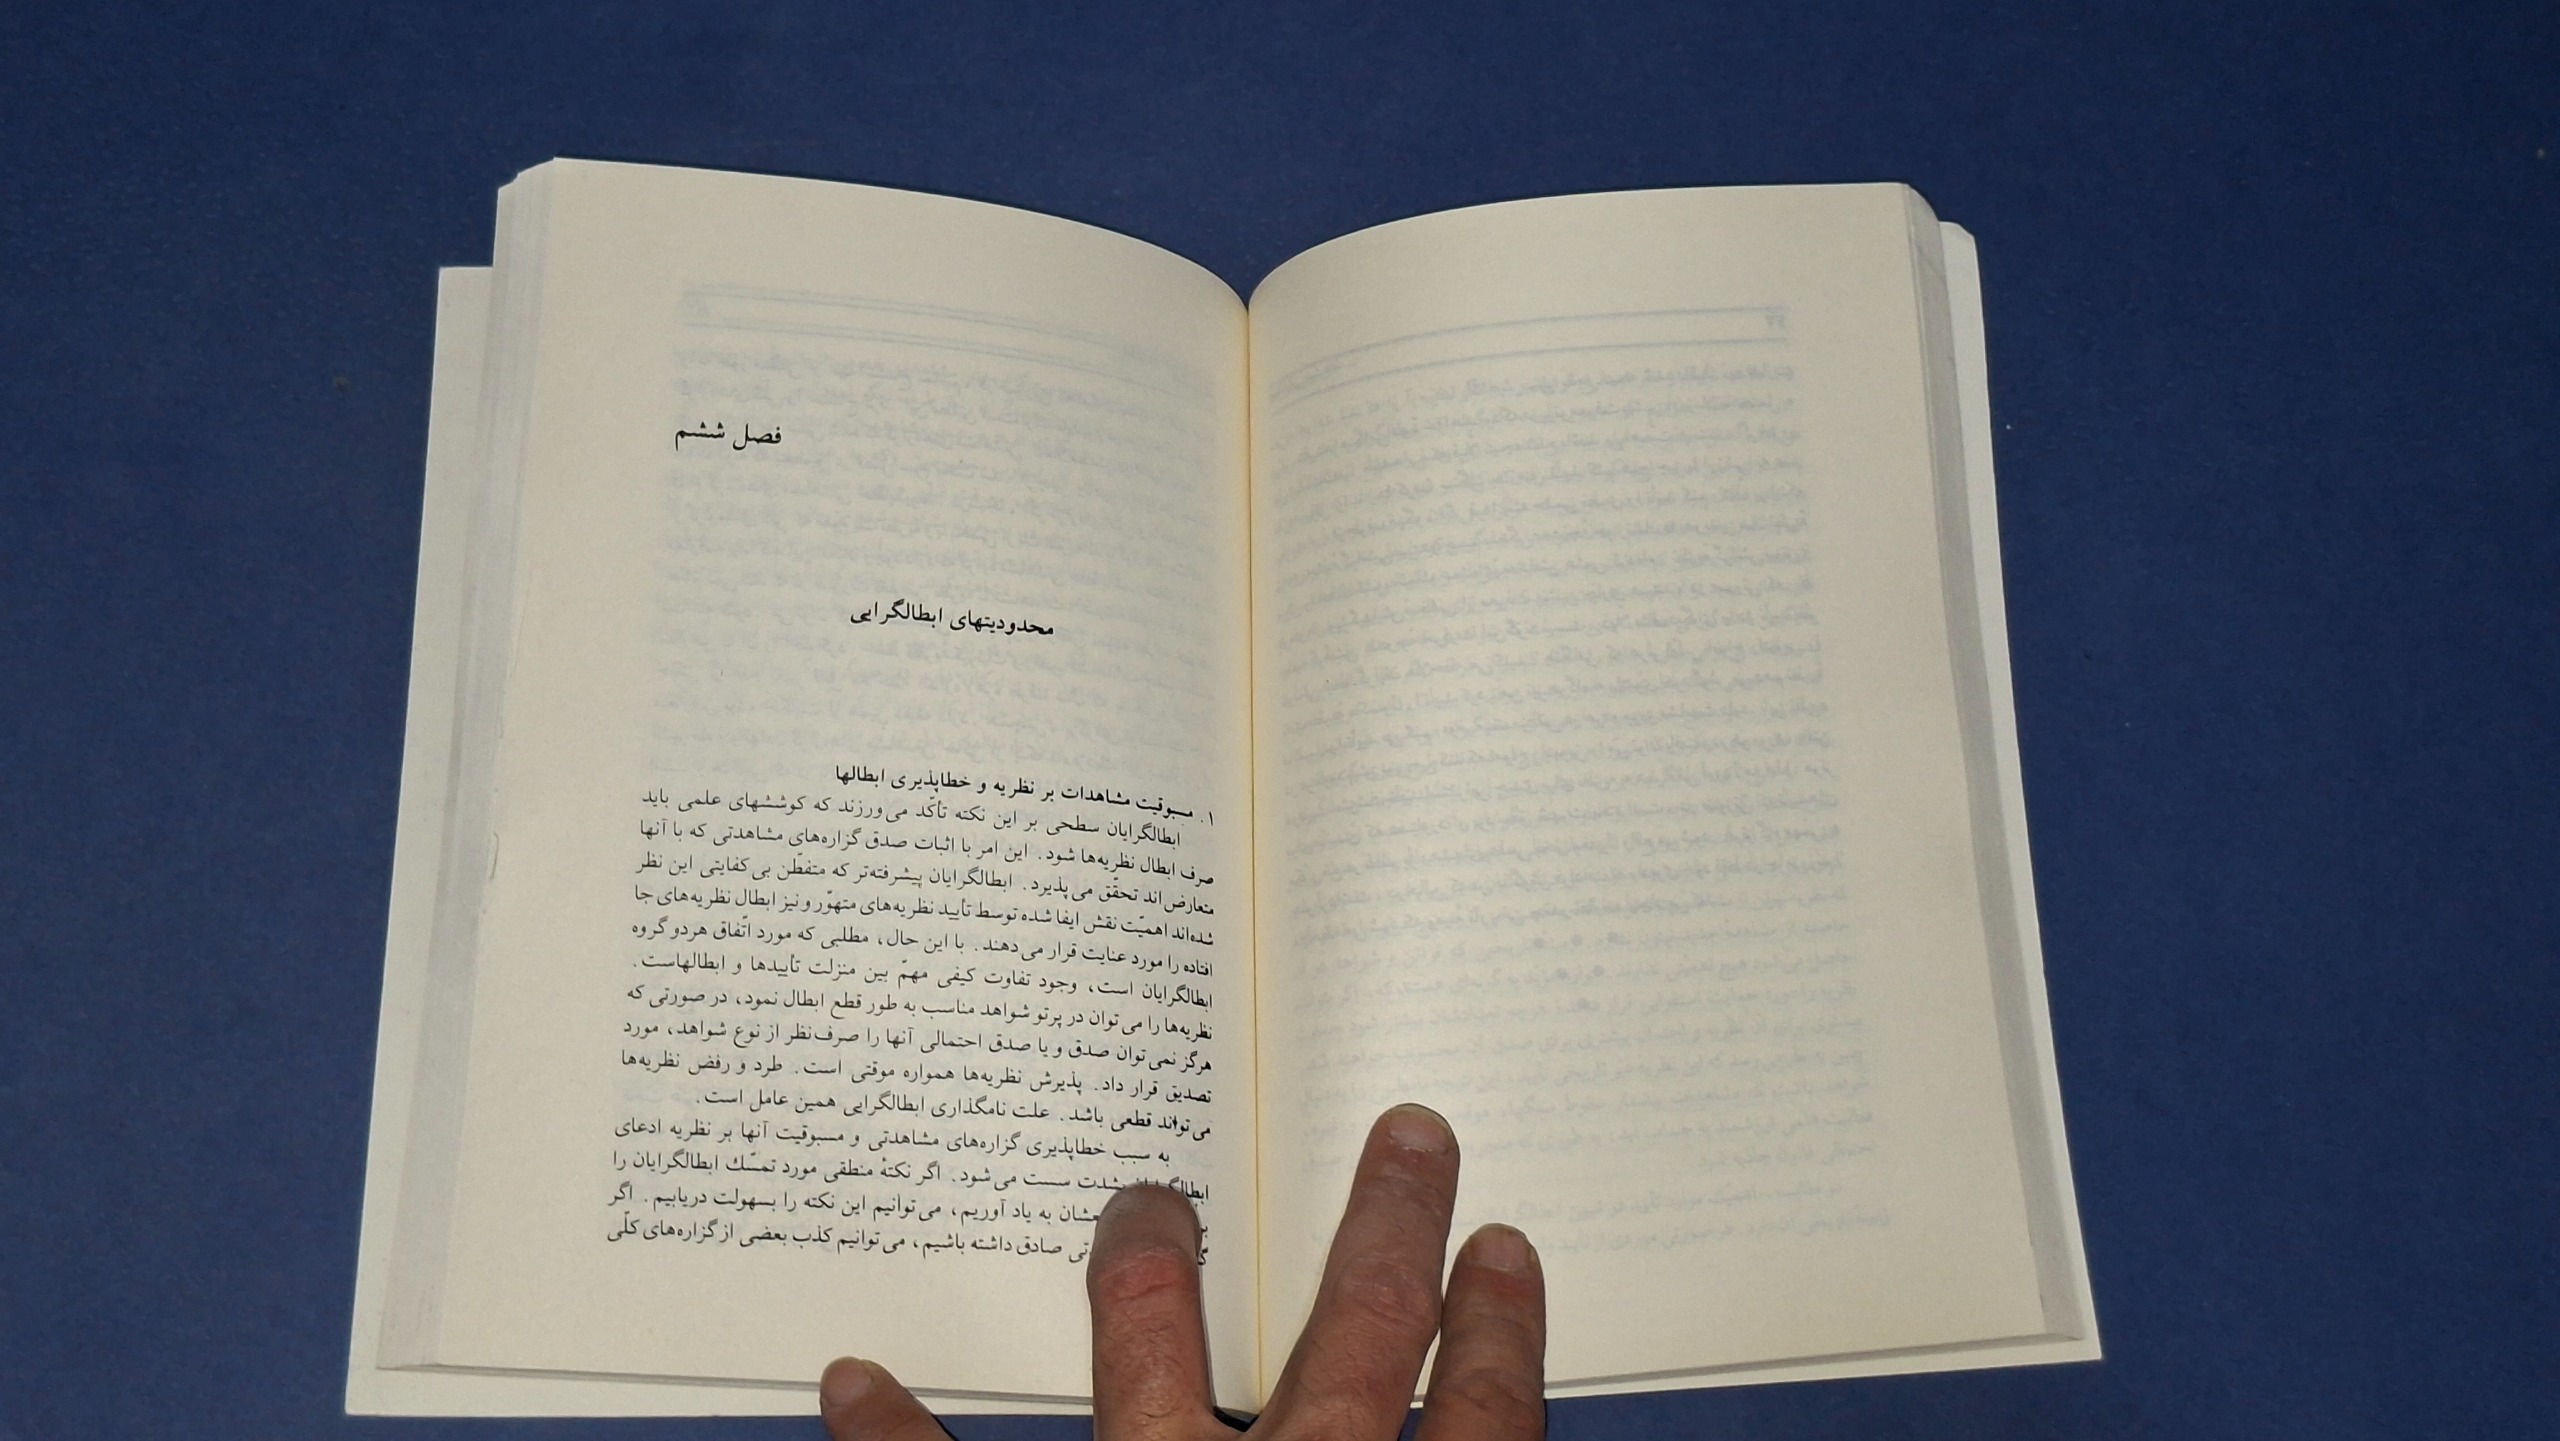 فصل ششم
محدودیتهای ابطالگرایی
۱. مسبوقیت مشاهدات بر نظریه و خطاپذیری ابطالها
ابطالگرایان سطحی بر این نکته تأکّد می‌ورزند که کوششهای علمی باید
صرف ابطال نظریه‌ها شود. این امر با اثبات صدق گزاره‌های مشاهدتی که با آنها
متعارض‌اند تحقّق می‌پذیرد. ابطالگرایان پیشرفته‌تر که متفطّن بی‌کفایتی این نظر
شده‌اند اهمیّت نقش ایفا شده توسط تأیید نظریه‌های متهوّر و نیز ابطال نظریه‌های جا
افتاده را مورد عنایت قرار می‌دهند. با این حال، مطلبی که مورد اتّفاق هردو گروه
ابطالگرایان است، وجود تفاوت کیفی مهمّ بین منزلت تأییدها و ابطالهاست.
نظریه‌ها را می‌توان در پرتو شواهد مناسب به طور قطع ابطال نمود، در صورتی که
هرگز نمی‌توان صدق و یا صدق احتمالی آنها را صرف‌نظر از نوع شواهد، مورد
تصدیق قرار داد. پذیرش نظریه‌ها همواره موقتی است. طرد و رفض نظریه‌ها
می‌تواند قطعی باشد. علت نامگذاری ابطالگرایی همین عامل است.
به سبب خطاپذیری گزاره‌های مشاهدتی و مسبوقیت آنها بر نظریه ادعای
بشدت سست می‌شود. اگر نکتهٔ منطقی مورد تمسّك ابطالگرایان را
به یاد آوریم، می‌توانیم این نکته را بسهولت دریابیم. اگر
صادق داشته باشیم، می‌توانیم کذب بعضی از گزاره‌های کلّی